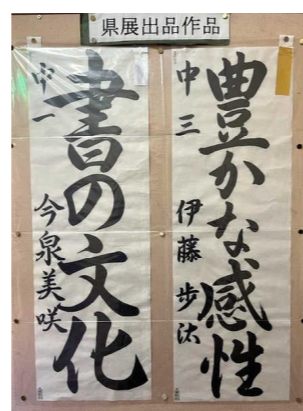 県展出品作品
豊かな感性
中三 伊藤歩汰
書の文化
中一 今泉美咲